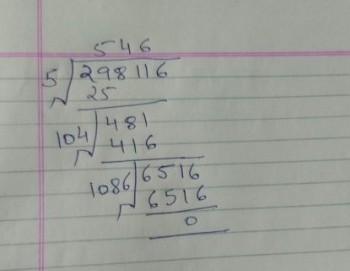 546
5 298116
25
104 481
416
1086 6516
6516
0